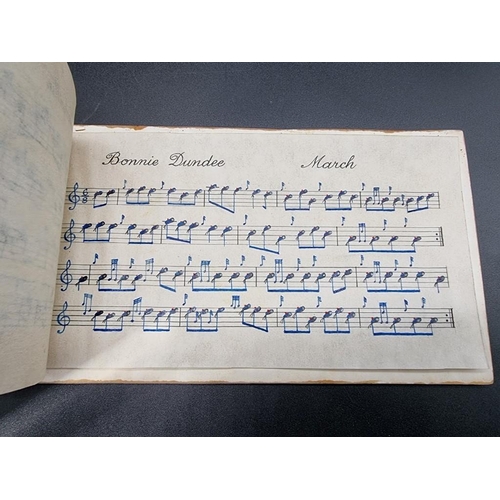 Bonnie Dundee March
6
8